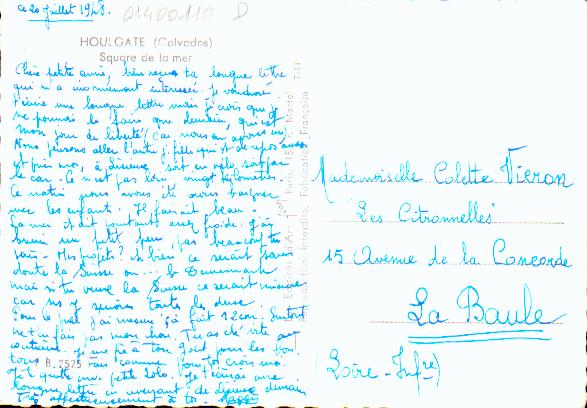 ce 20 Juillet 1948.
01400110 D
HOULGATE (Calvados)
Square de la mer
Chère petite amie, bien reçu ta longue lettre
qui m'a énormément intéressée. Je voudrais
t'écrire une longue lettre mais je crois que je
ne pourrais le faire que demain, qui est
mon jour de liberté (car nous en avons un).
Nous pensons aller l'autre j. fille qui est de repos aussi
et moi, à Lisieux soit en vélo, soit par
le car. Ce n'est pas loin, vingt kilomètres.
Ce matin nous avons été nous baigner
avec les enfants. Il faisait beau.
La mer était pourtant assez froide. J'ai
bruni un petit peu, pas beaucoup tu
sais. Mes projets? Eh bien ce serait sans
doute la Suisse ou ... le Danemark
mais si tu veux la Suisse ce serait mieux
car ns y serions toutes les deux.
Pour le pull j'ai mesuré ça fait 12 cm. Surtout
ne t'en fais pas mon chou. Tu as dû être au
contraire. Je me fie à ton goût pour les bon
tons fais comme pour toi
Je te quitte mon petit Lolo. Je t'écrirai une
longue lettre en revenant de demain
Très affectueusement à toi
B. 2525
Fabrication Française
Mademoiselle Colette Vieron
"Les Citronnelles"
15 Avenue de la Concorde
La Baule
(Loire-Infre)